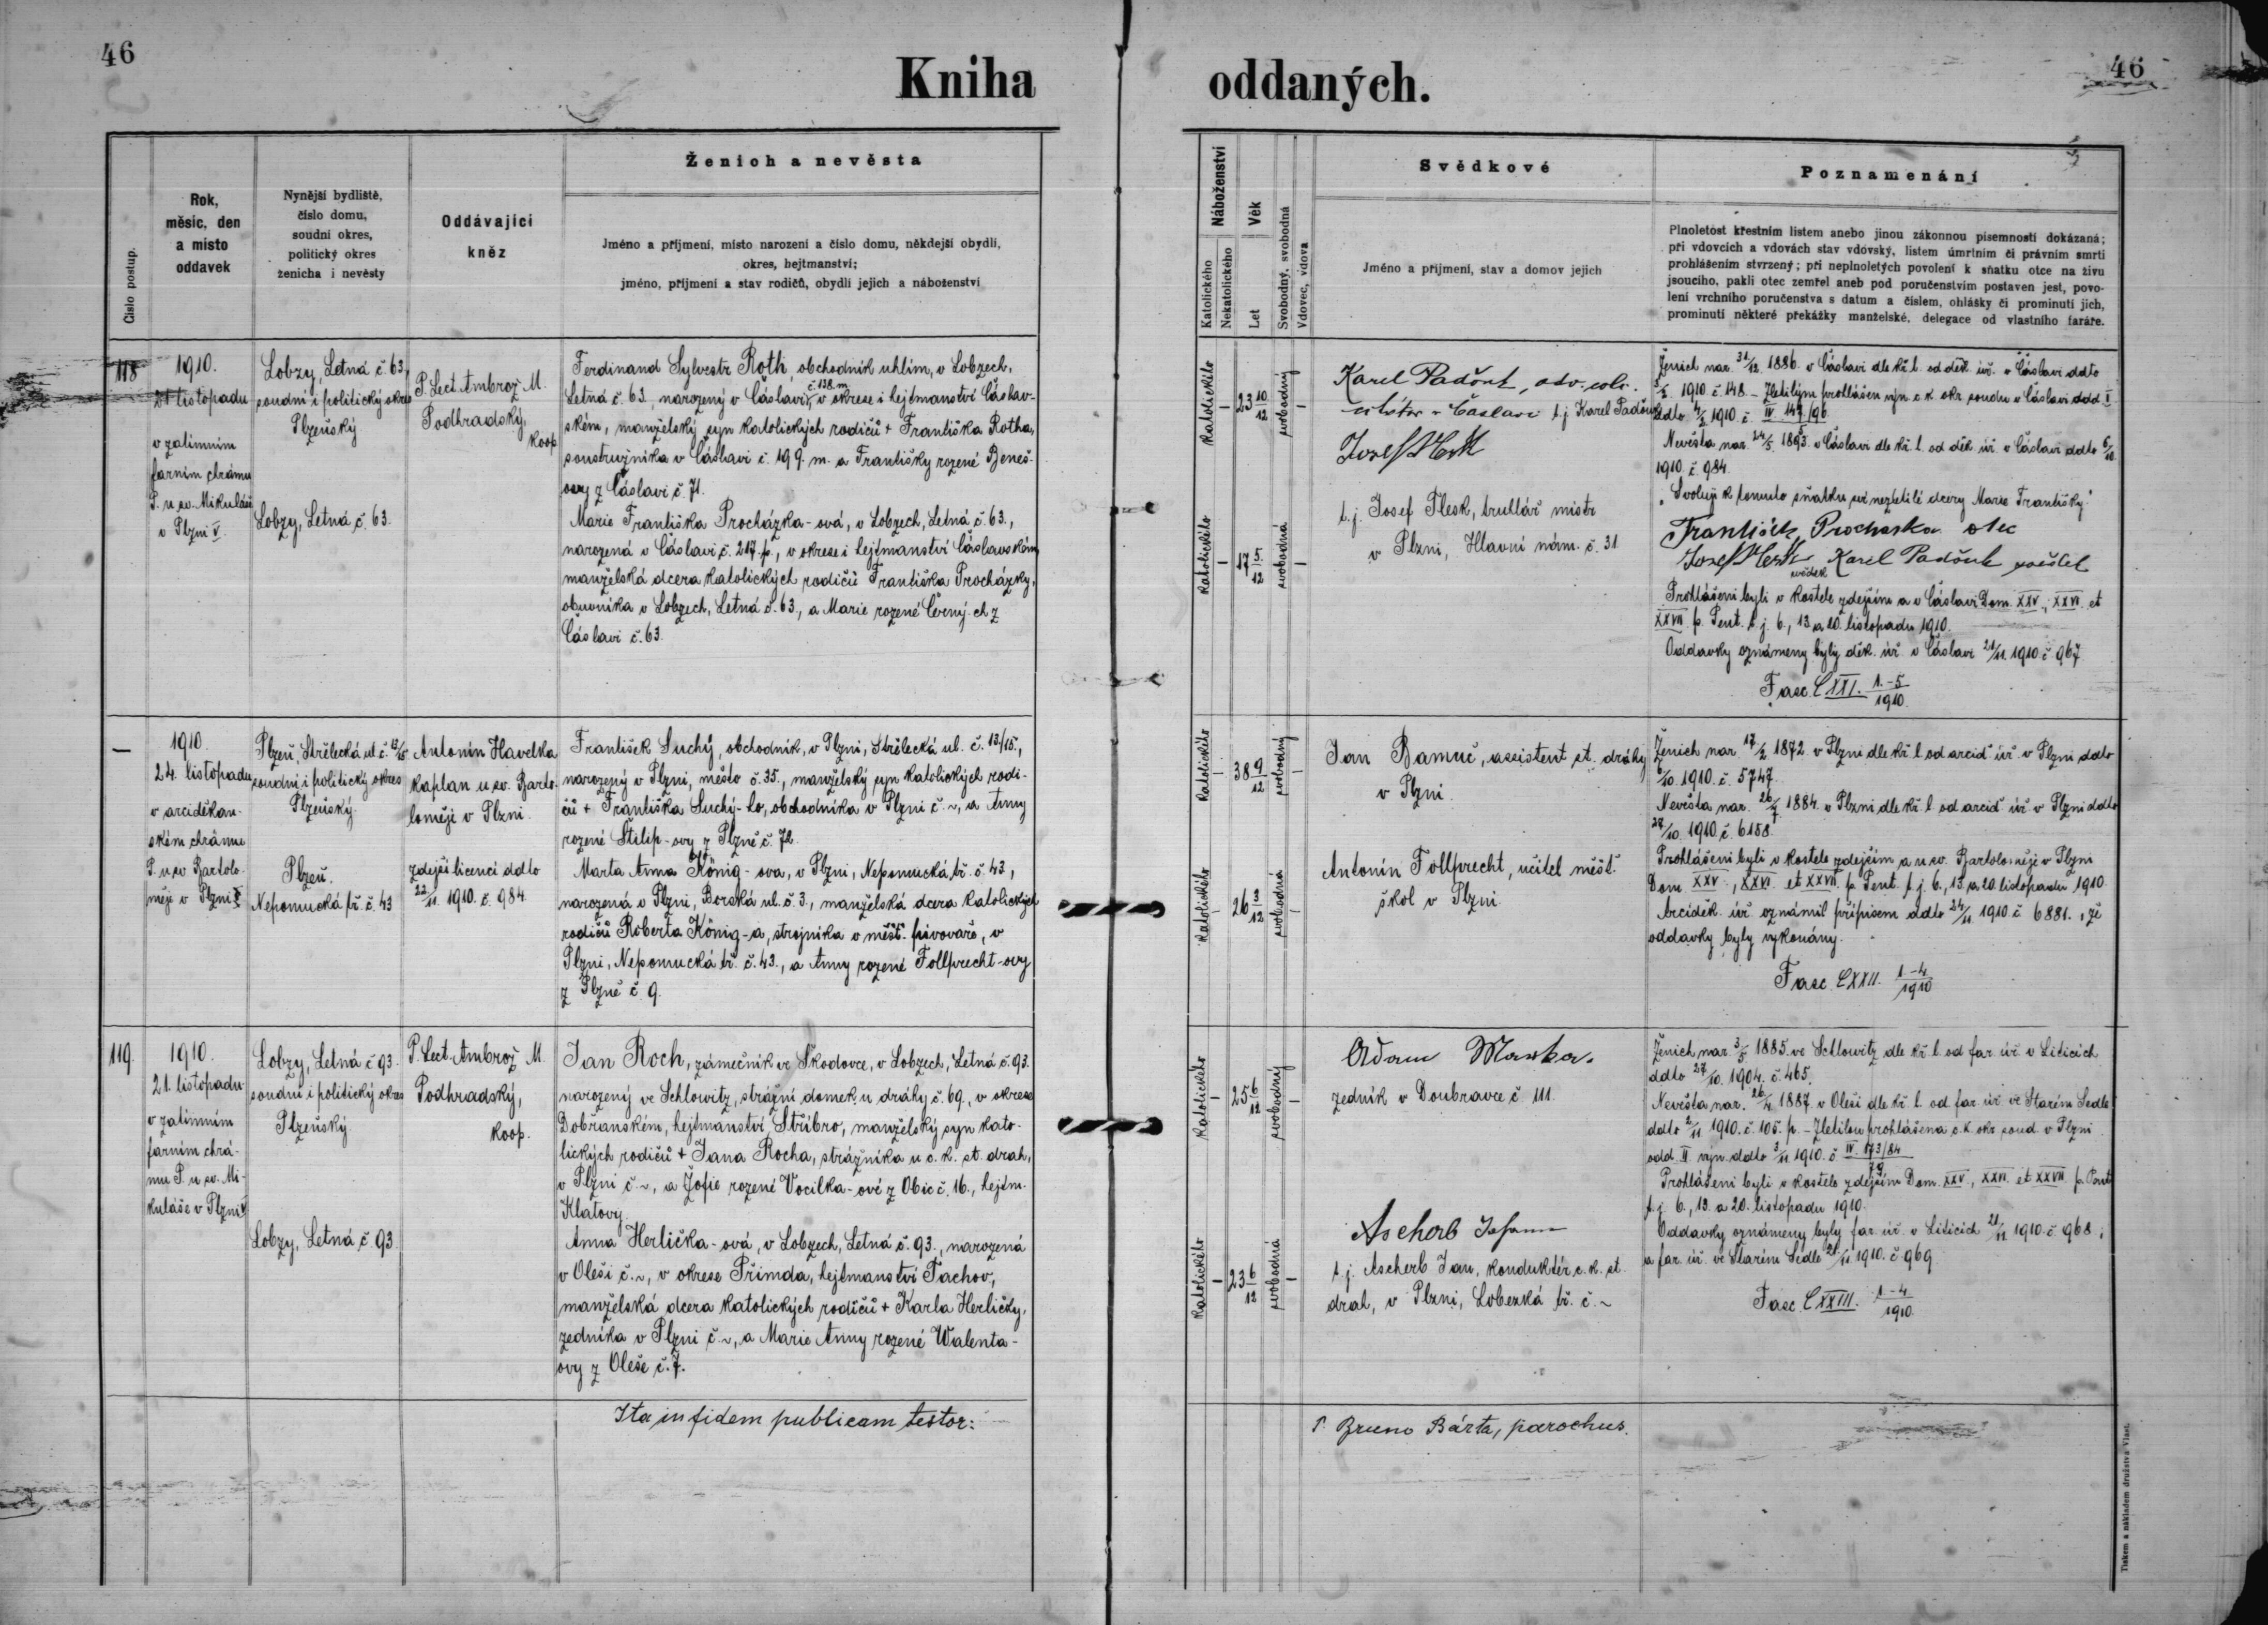 46
Kniha
oddaných.
46
Číslo postup.
Rok,
měsíc, den
a místo
oddavek
Nynější bydliště,
číslo domu,
soudní okres,
politický okres
ženicha i nevěsty
Oddávající
kněz
Ženich a nevěsta
Jméno a příjmení, místo narození a číslo domu, někdejší obydlí,
okres, hejtmanství;
jméno, příjmení a stav rodičů, obydlí jejich a náboženství
Náboženství
Katolického
Nekatolického
Věk
Let
Svobodný, svobodná
Vdovec, vdova
Svědkové
Jméno a příjmení, stav a domov jejich
Poznamenání
Plnoletost křestním listem anebo jinou zákonnou písemností dokázaná;
při vdovcích a vdovách stav vdovský, listem úmrtním či právním smrti
prohlášením stvrzený; při neplnoletých povolení k sňatku otce na živu
jsoucího, pakli otec zemřel aneb pod poručenstvím postaven jest, povo-
lení vrchního poručenstva s datum a číslem, ohlášky či prominutí jich,
prominutí některé překážky manželské, delegace od vlastního faráře.
118
1910.
21 listopadu
v zatimním
farním chrámu
P. u sv. Mikuláše
v Plzni V.
Lobzy, Letná č. 63,
soudní i politický okres
Plzeňský
Lobzy, Letná č. 63.
P. Lect. Ambrož M.
Podhradský,
koop
Ferdinand Sylvestr Roth, obchodník uhlím, v Lobzech,
Letná č. 63., narozený v Čáslavi, č. 138. m. v okrese i hejtmanství Čáslav-
ském, manželský syn katolických rodičů + Františka Rotha,
soustružníka v Čáslavi č. 199. m. a Františky rozené Beneš-
ovy z Čáslavi č. 71.
Marie Františka Procházka-ová, v Lobzech, Letná č. 63.,
narozená v Čáslavi č. 217. p., v okrese i hejtmanství Čáslavském,
manželská dcera katolických rodičů Františka Procházky,
obuvníka v Lobzech, Letná č. 63., a Marie rozené Černý-ch z
Čáslavi č. 63.
Katolického
–
23 10/12
svobodný
–
Katolického
–
17 5/12
svobodná
–
Karel Padourk, adv. solic.
v Čáslavi t. j. Karel Padourk
t. j. Josef Flesk, truhlář mistr
v Plzni, Hlavní nám. č. 31
Ženich nar. 31/12. 1886. v Čáslavi dle kř. l. od děk. úř. v Čáslavi ddto
1910. č. 148. – Zletilým prohlášen výn. c. k. okr. soudu v Čáslavi odd. I
ddto 1910. č. IV. 147/96.
Nevěsta nar. 24/5. 1893. v Čáslavi dle kř. l. od děk. úř. v Čáslavi ddto 6/10.
1910. č. 984.
"Svoluji k tomuto sňatku své nezletilé dcery Marie Františky"
František Prochaska otec
svědek Karel Padourk svědek
Prohlášeni byli v kostele zdejším a v Čáslavi Dom. XXV., XXVI. et
XXVII. p. Pent. t. j. 6., 13. a 20. listopadu 1910.
Oddavky oznámeny byly děk. úř. v Čáslavi 21/11. 1910. č. 967.
Fasc. CXXI. 1.-5/1910.
–
1910.
24. listopadu
v arciděkan-
ském chrámu
P. u sv. Bartolo-
měje v Plzni I.
Plzeň, Střelecká ul. č. 13/15
soudní i politický okres
Plzeňský.
Plzeň.
Nepomucká tř. č. 43
Antonín Havelka
kaplan u sv. Barto-
loměje v Plzni.
zdejší licencí ddto
22/11. 1910. č. 984.
František Suchý, obchodník, v Plzni, Střelecká ul. č. 13/15.,
narozený v Plzni, město č. 35., manželský syn katolických rodi-
čů + Františka Suchý-ho, obchodníka v Plzni č. ~, a Anny
rozené Štilip-ovy z Plzně č. 72.
Marta Anna König-ova, v Plzni, Nepomucká tř. č. 43,
narozená v Plzni, Borská ul. č. 3., manželská dcera katolických
rodičů Roberta König-a, strojníka v měšť. pivovaře, v
Plzni, Nepomucká tř. č. 43., a Anny rozené Follprecht-ovy
z Plzně č. 9.
Katolického
–
38 9/12
svobodný
–
Katolického
–
26 3/12
svobodná
–
Jan Bamuč, assistent st. dráhy
v Plzni.
Antonín Follprecht, učitel měšť.
škol v Plzni.
Ženich nar. 17/2. 1872. v Plzni dle kř. l. od arciď. úř. v Plzni ddto
/10. 1910. č. 5747.
Nevěsta nar. 26/7. 1884. v Plzni, dle kř. l. od arciď. úř. v Plzni ddto
/10. 1910. č. 6158.
Prohlášeni byli v kostele zdejším a u sv. Bartoloměje v Plzni
Dom. XXV., XXVI. et XXVII. p. Pent. t. j. 6., 13. a 20. listopadu 1910.
Arciděk. úř. oznámil přípisem ddto 24/11. 1910. č. 6881., že
oddavky byly vykonány.
Fasc. CXXII. 1-4/1910
119.
1910.
21. listopadu
v zatimním
farním chrá-
mu P. u sv. Mi-
kuláše v Plzni V
Lobzy, Letná č. 93.
soudní i politický okres
Plzeňský.
Lobzy, Letná č. 93.
P. Lect. Ambrož M.
Podhradský,
koop.
Jan Roch, zámečník ve Škodovce, v Lobzech, Letná č. 93.
narozený ve Schlowitz, strážní domek u dráhy č. 69., v okrese
Dobřanském, hejtmanství Stříbro, manželský syn kato-
lických rodičů + Jana Rocha, strážníka u c. k. st. drah,
v Plzni č. ~, a Žofie rozené Vocilka-ové z Obic č. 16., hejtm.
Klatovy.
Anna Herlička-ová, v Lobzech, Letná č. 93., narozená
v Oleši č. ~, v okrese Přimda, hejtmanství Tachov,
manželská dcera katolických rodičů + Karla Herličky,
zedníka v Plzni č. ~, a Marie Anny rozené Walenta-
ovy z Oleše č. 7.
Katolického
–
25 6/12
svobodný
–
Katolického
–
23 6/12
svobodná
–
Adam Maska.
zedník v Doubravce č. 111.
Ascherb Johann
t. j. Ascherb Jan, konduktér c. k. st.
drah, v Plzni, Lobezká tř. č. ~
Ženich nar. 3/5. 1885. ve Schlowitz dle kř. l. od far. úř. v Liticích
ddto 27/10. 1904. č. 465.
Nevěsta nar. 26/4. 1887. v Oleši dle kř. l. od far. úř. ve Starém Sedle
ddto 2/11. 1910. č. 105. p. – Zletilou prohlášena c. k. okr. soud. v Plzni
odd. II. výn. ddto 3/11. 1910. č. IV. 173/84
Prohlášeni byli v kostele zdejším Dom. XXV., XXVI. et XXVII. p. Pent.
t. j. 6., 13. a 20. listopadu 1910.
Oddavky oznámeny byly far. úř. v Liticích 21/11. 1910. č. 968.,
a far. úř. ve Starém Sedle 21/11. 1910. č. 969.
Fasc. CXXIII. 1-4/1910.
Ita in fidem publicam testor:
P. Bruno Bárta, parochus.
Tiskem a nákladem družstva Vlast.